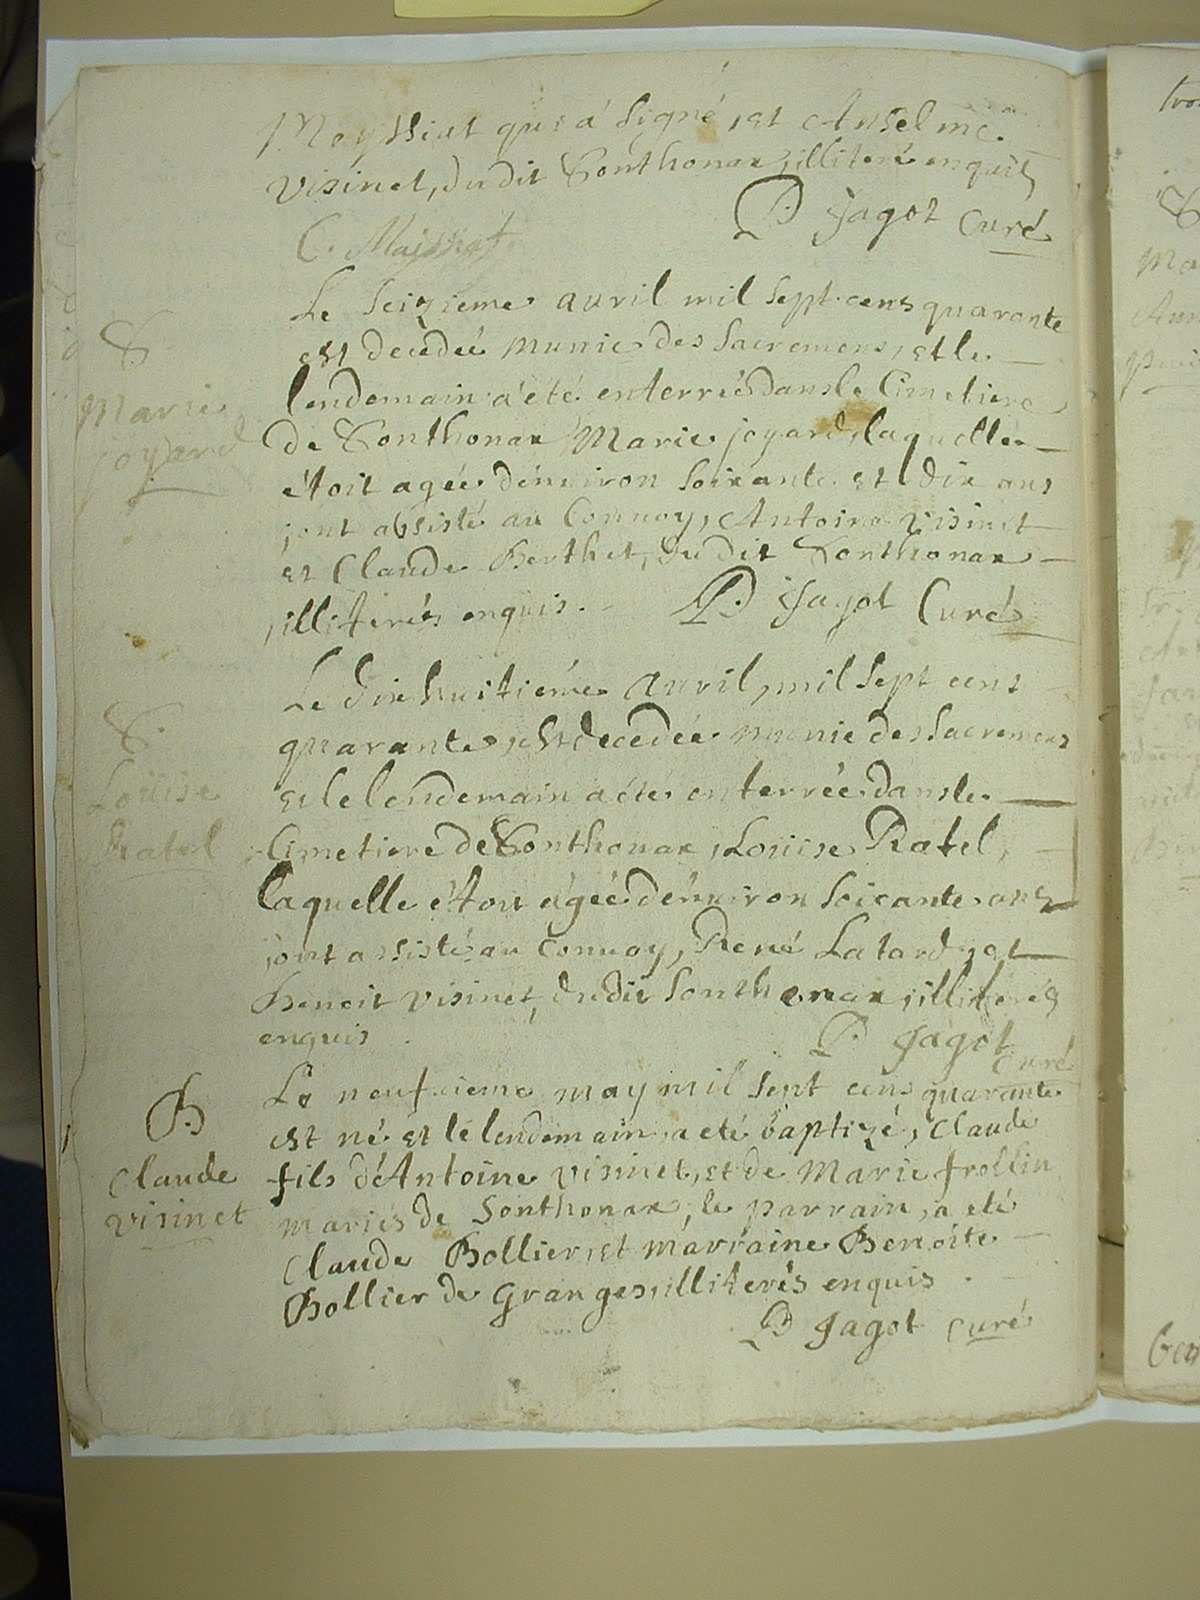 Meyssiat qui a signé, et Anselme
visinet, du dit Sonthonax, illiteré enquis
P. Jagot Curé
C. Maissiat
S
Marie
joyard
Le seizieme avril mil sept cens quarante
est decèdeé munie des sacremens, et le
lendemain a été enterreé dans le Cimetiere
de Sonthonax Marie joyard, laquelle
étoit ageé d'énviron soixante et dix ans
,ont assisté au Convoy, Antoine visinet
et Claude Berthet, du dit Sonthonax
,illiterés enquis. P. Jagot Curé
S.
Loüise
Ratel
Le dixhuitiéme avril, mil sept cens
quarante, est decedeé munie des sacremens
et le lendemain a été enterreé dans le
Cimetiere de Sonthonax, Loüise Ratel,
laquelle étoit ageé d'énviron soixante ans
,ont assisté au convoy, René Latard, et
Benoit visinet, du dit Sonthonax, illiterés
enquis. P. Jagot
curé
B
Claude
visinet
Le neufvieme may mil sept cens quarante
est né et le lendemain a eté baptizé, Claude
fils d'Antoine visinet, et de Marie frollin
mariés de Sonthonax, le parrain, a eté
Claude Bollier, et marraine Benoite
Bollier de Granges, illiterés enquis.
P Jagot curé